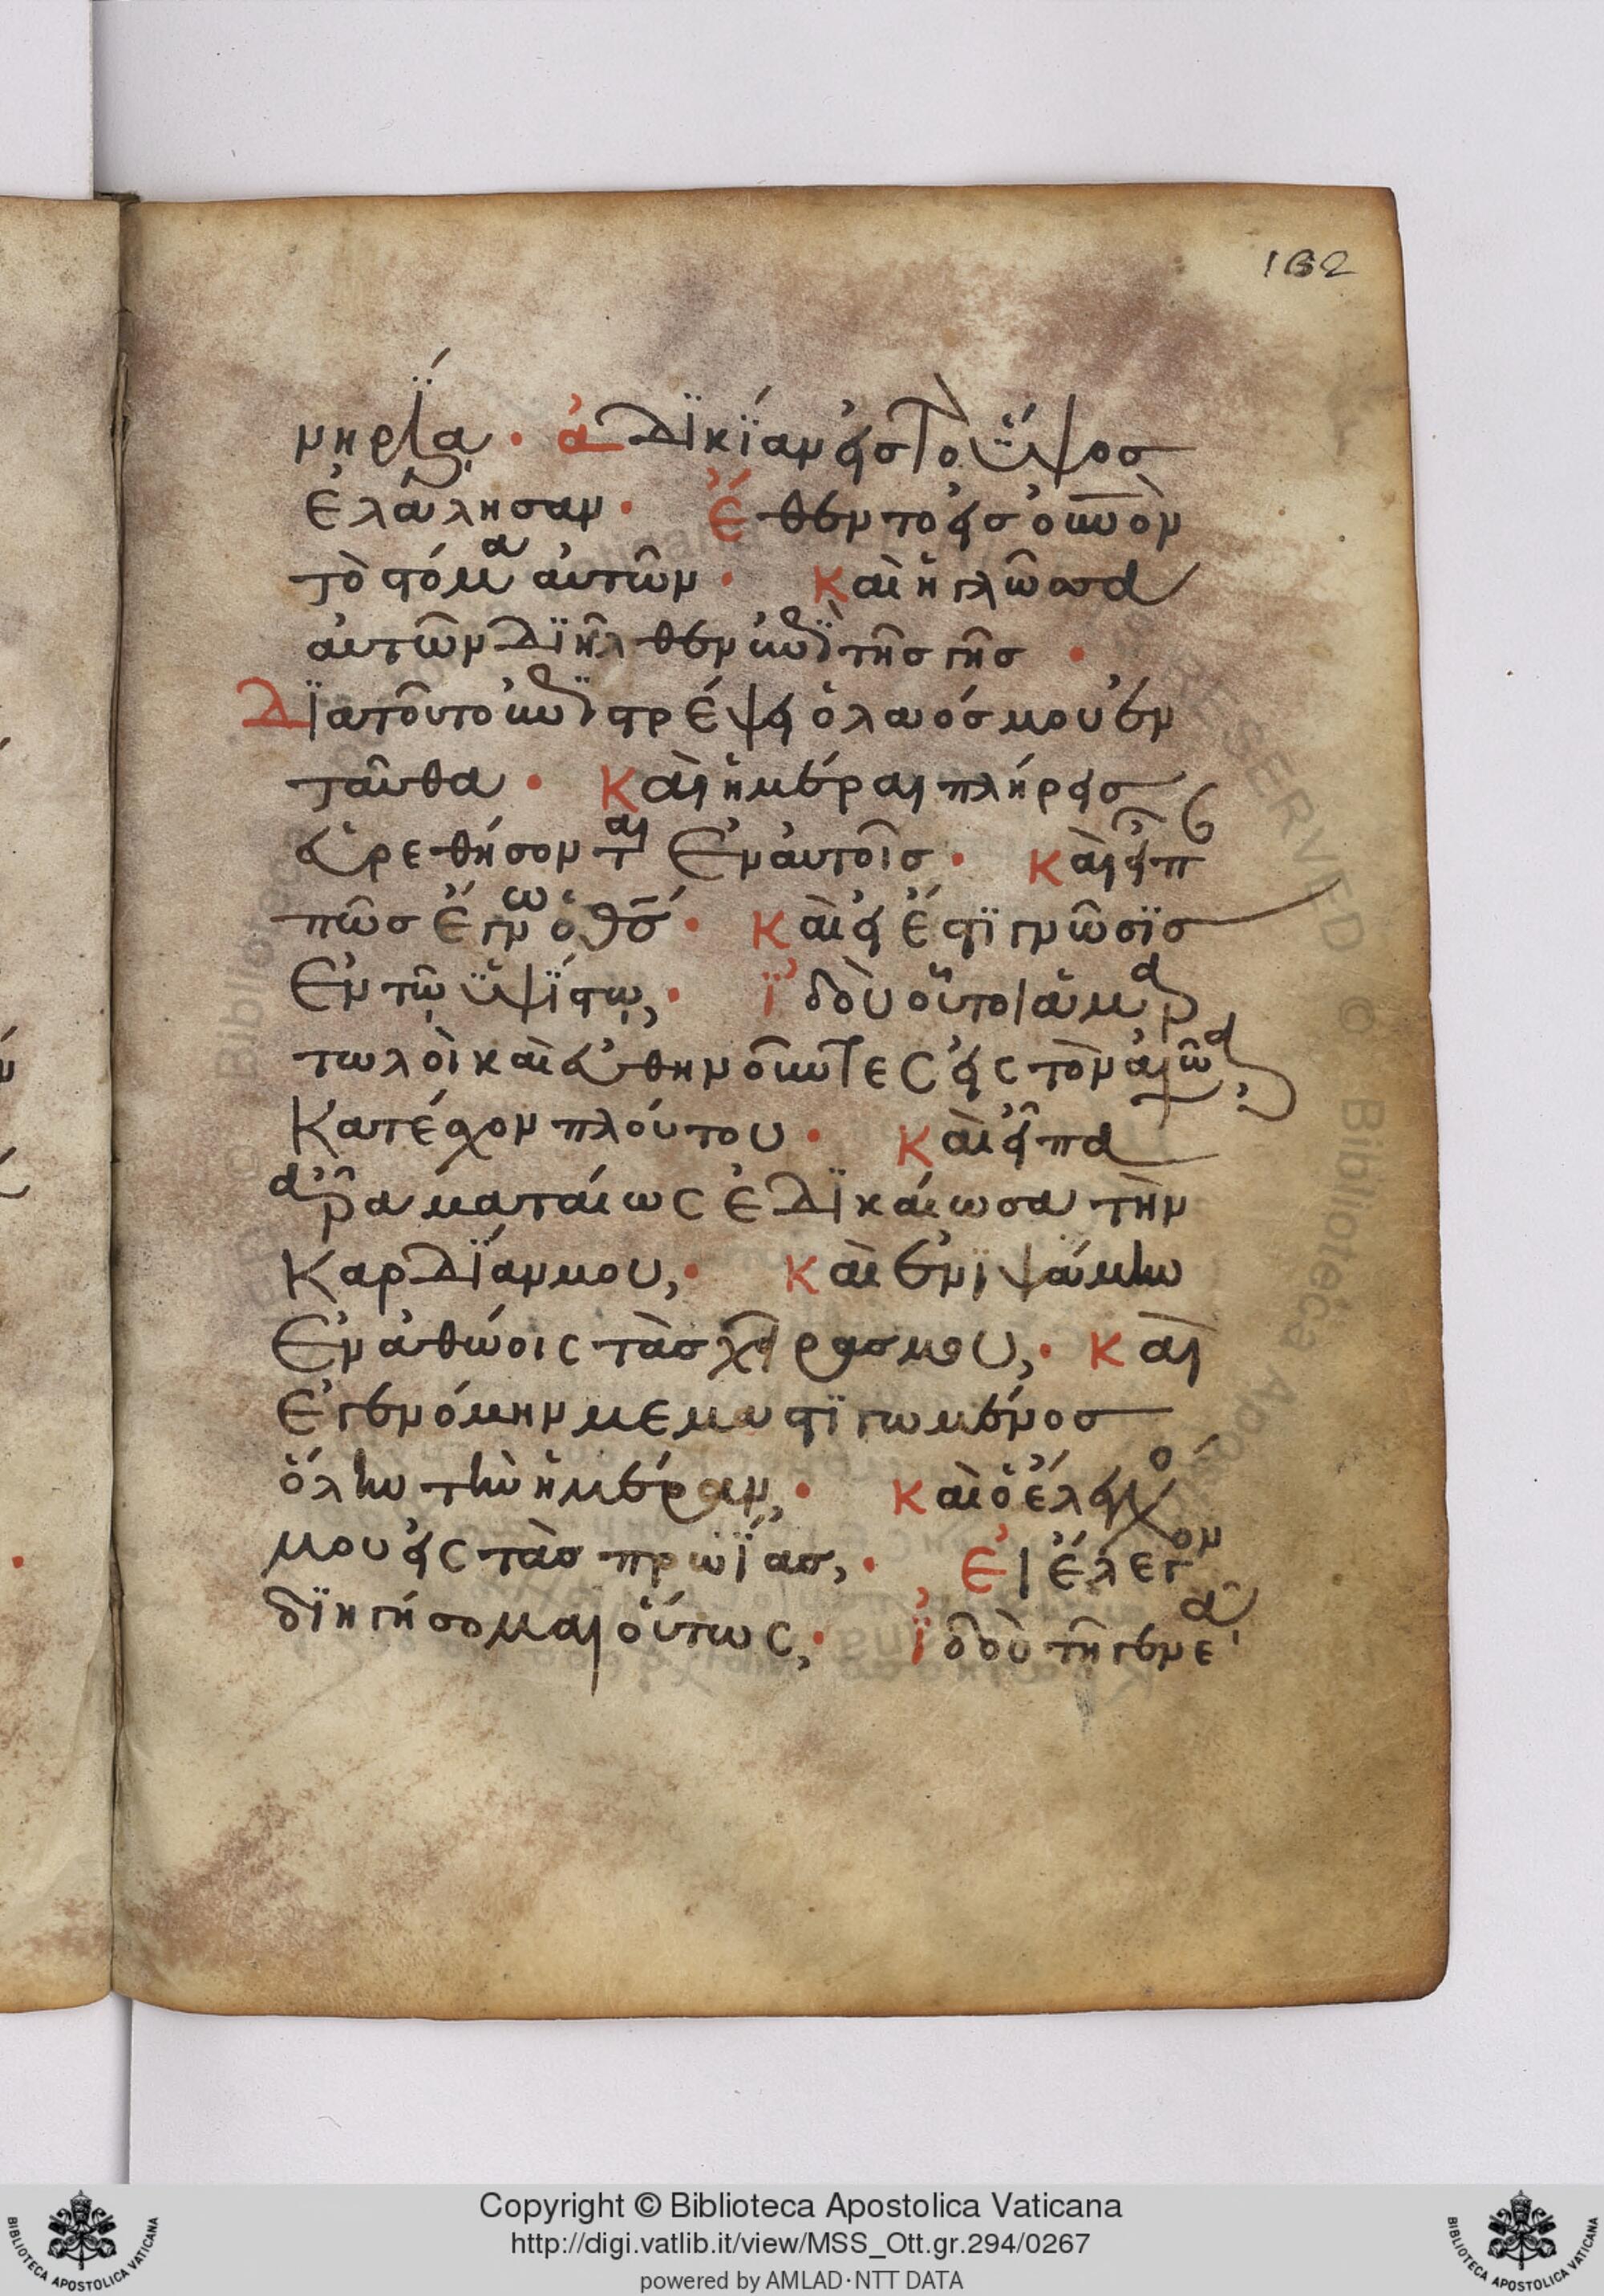 132
νηρία· ἀδϊκϊαν εἰς τὸ ὕψος
ἐλάλησαν· Ἔθεντο εἰς οὐνὸν
τὸ στόμα αὐτῶν· Καὶ ἡ γλῶσσα
αὐτῶν διῆλθεν ἐπὶ τῆς γῆς·
Δϊατοῦτο ἐπιστρέψει ὁ λαός μου ἐν
ταῦθα· Καὶ ἡμέραι πλήρεις
εὑρεθήσονται ἐν αὐτοῖς· Καὶ εἶπ
πῶς ἔγνω ὁ θσ· Καὶ εἰ ἔστϊ γνῶσϊς
ἐν τῷ ὑψίστῳ,· ϊδοὺ οὗτοι ἁμαρ
τωλοὶ καὶ εὐθηνοῦντες εἰς τὸν αἰῶνα
Κατέσχον πλούτου· Καὶ εἶπα
ἄρα ματαίως ἐδικαίωσα τὴν
Καρδίαν μου,· Καὶ ἐνιψάμην
Ἐν ἀθώοις τὰς χεῖρας μου,· Καὶ
Ἐγενόμην μεμαστϊγωμένος
ὅλην τὴν ἡμέραν,· Καὶ ὁ ἔλεγχός
μου εἰς τὰς πρωΐας,· Εἰ ἔλεγον
διηγήσομαι οὕτως,· ϊδοὺ τῆ γενεᾶ
Copyright © Biblioteca Apostolica Vaticana
http://digi.vatlib.it/view/MSS_Ott.gr.294/0267
powered by AMLAD·NTT DATA
BIBLIOTECA APOSTOLICA VATICANA
BIBLIOTECA APOSTOLICA VATICANA